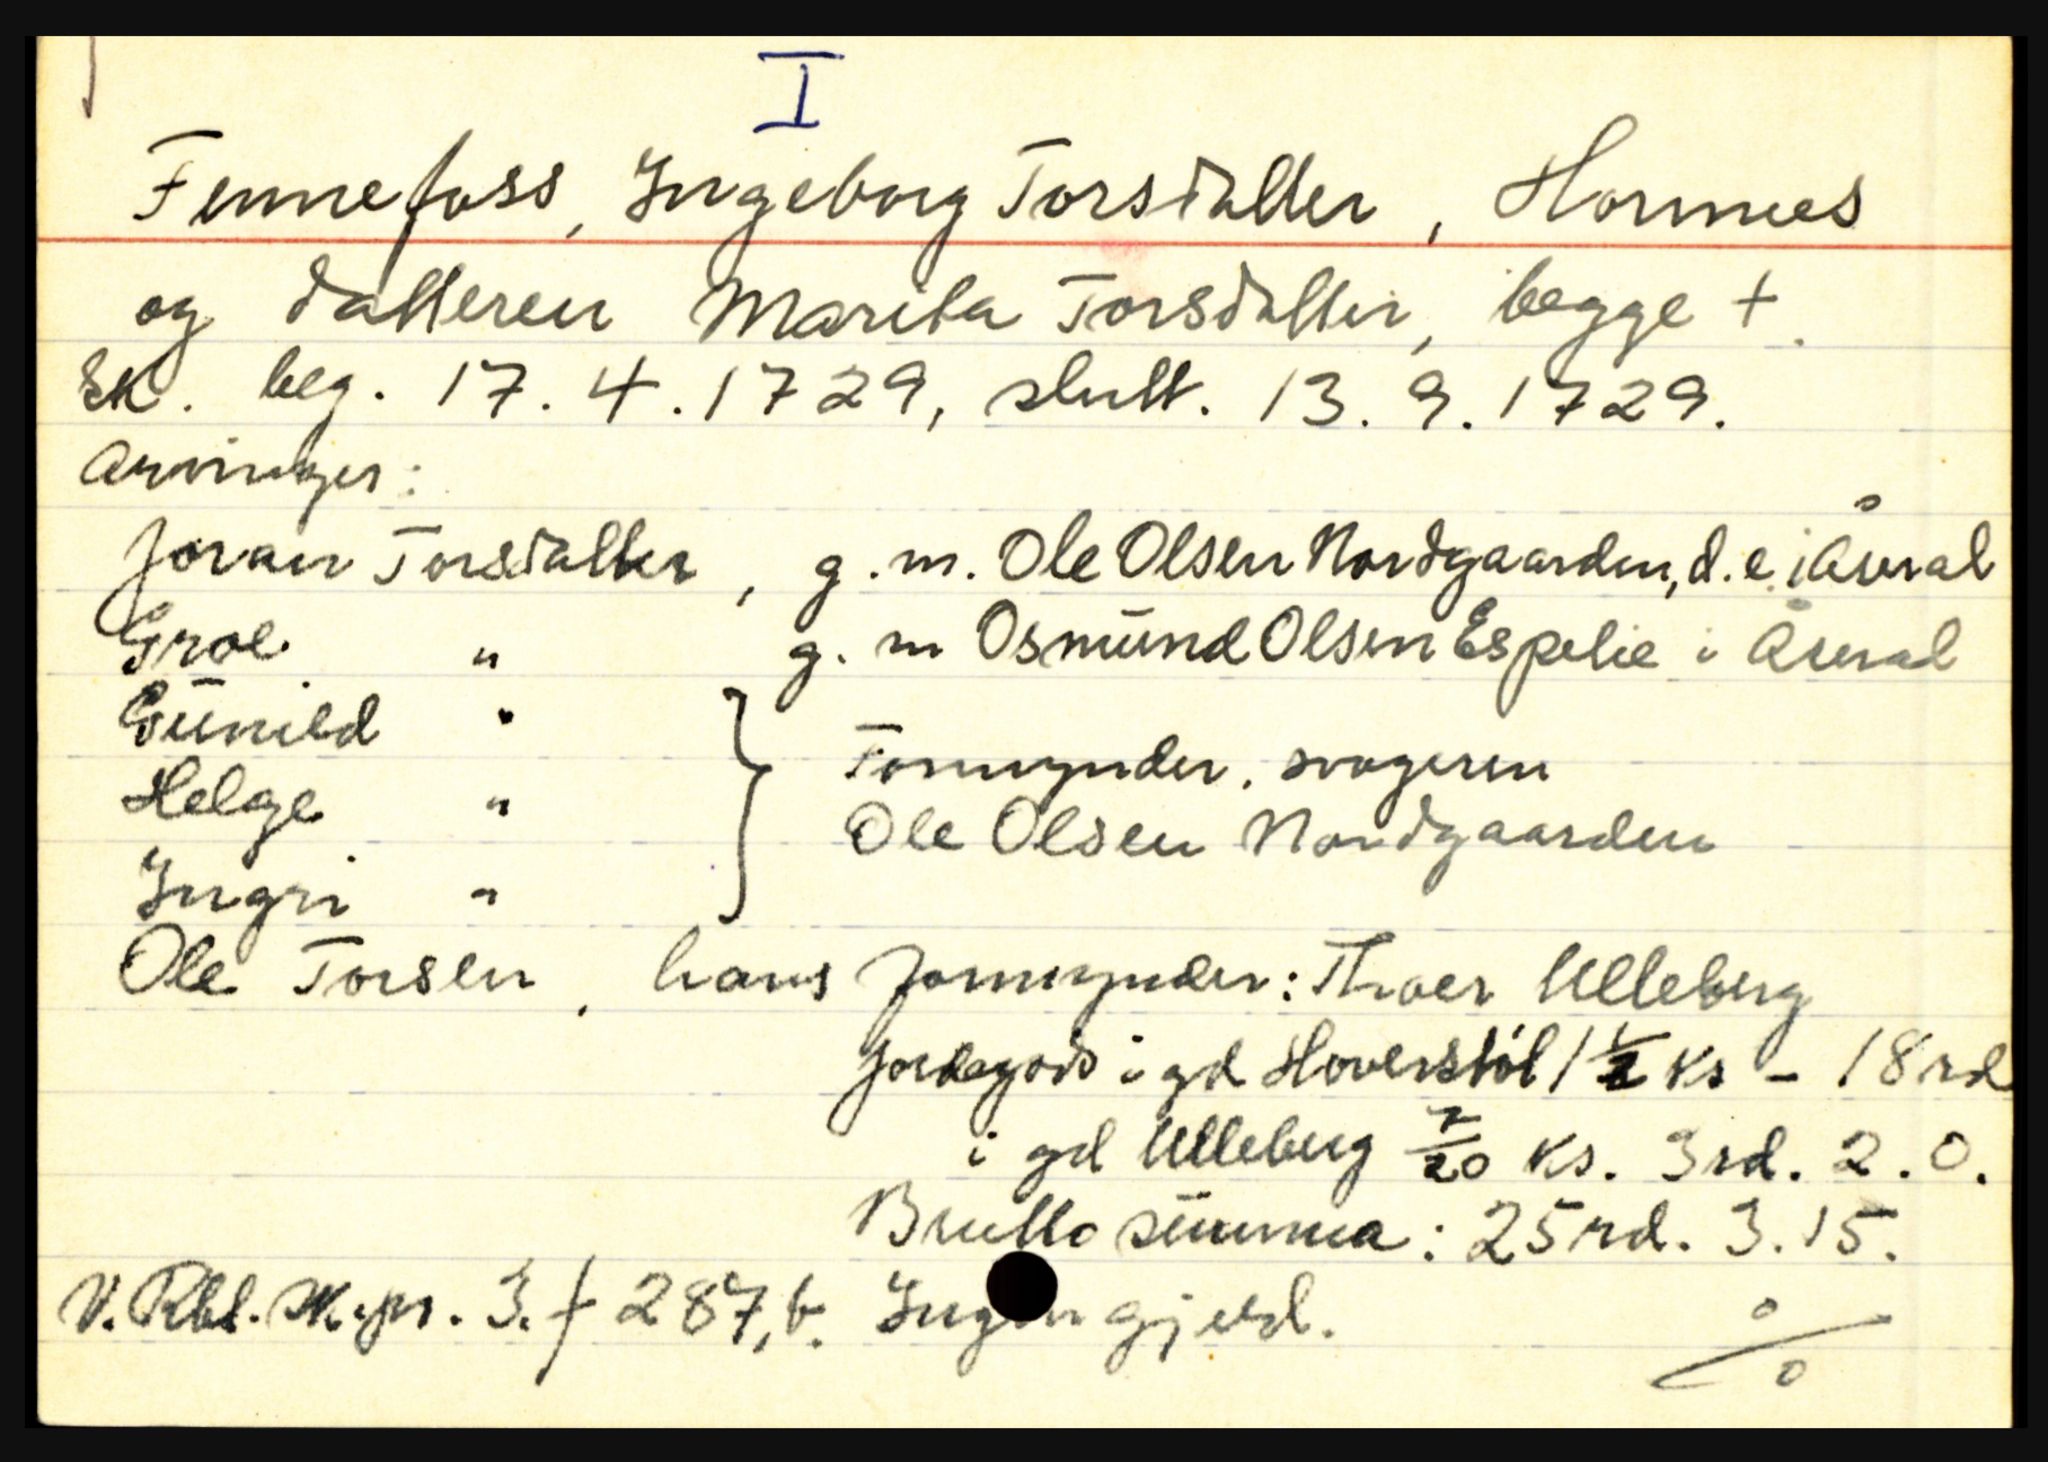 I
Fennefoss, Ingeborg Torsdatter, Hornnes
og datteren Marita Torsdatter, begge +.
Sk. beg. 17.4.1729, slutt. 13.9.1729.
Arvinger:
Joran Torsdatter, g.m. Ole Olsen Nordgaarden, d.e. i Åseral
Groe " g.m Osmund Olsen Espelie i Åseral
Gunild "
Helge " } Formynder, svogeren
Ole Olsen Nordgaarden
Ingri "
Ole Torsen, hans formynder: Thoer Ulleberg
Jordegods i gd Hoverstöl 1 1/2 ks - 18 rd
i gd Ulleberg 7/20 ks. 3rd. 2.0.
Brutto summa: 25 rd. 3.15.
V. Rbl. sk.pr. 3. f 287,b. Ingen gjeld.
%